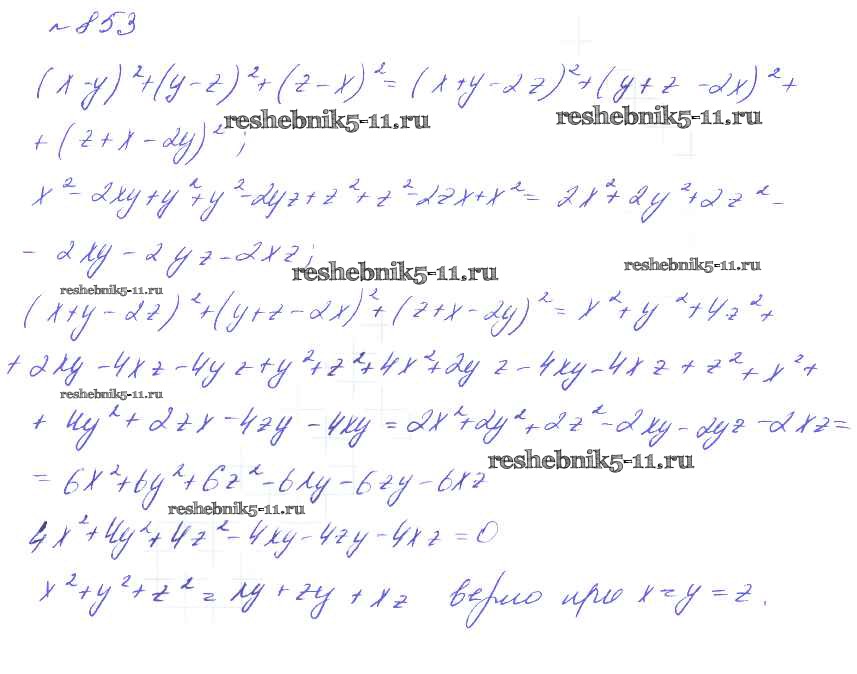 № 853
(x-y)²+(y-z)²+(z-x)²=(x+y-2z)²+(y+z-2x)²+
+(z+x-2y)²;
reshebnik5-11.ru reshebnik5-11.ru
x²-2xy+y²+y²-2yz+z²+z²-2zx+x²=2x²+2y²+2z²-
-2xy-2yz-2xz;
reshebnik5-11.ru reshebnik5-11.ru
reshebnik5-11.ru
(x+y-2z)²+(y+z-2x)²+(z+x-2y)²=x²+y²+4z²+
+2xy-4xz-4yz+y²+z²+4x²+2yz-4xy-4xz+z²+x²+
reshebnik5-11.ru
+4y²+2zx-4zy-4xy=2x²+2y²+2z²-2xy-2yz-2xz=
reshebnik5-11.ru
=6x²+6y²+6z²-6xy-6zy-6xz
reshebnik5-11.ru
4x²+4y²+4z²-4xy-4zy-4xz=0
x²+y²+z²=xy+zy+xz верно при x=y=z.